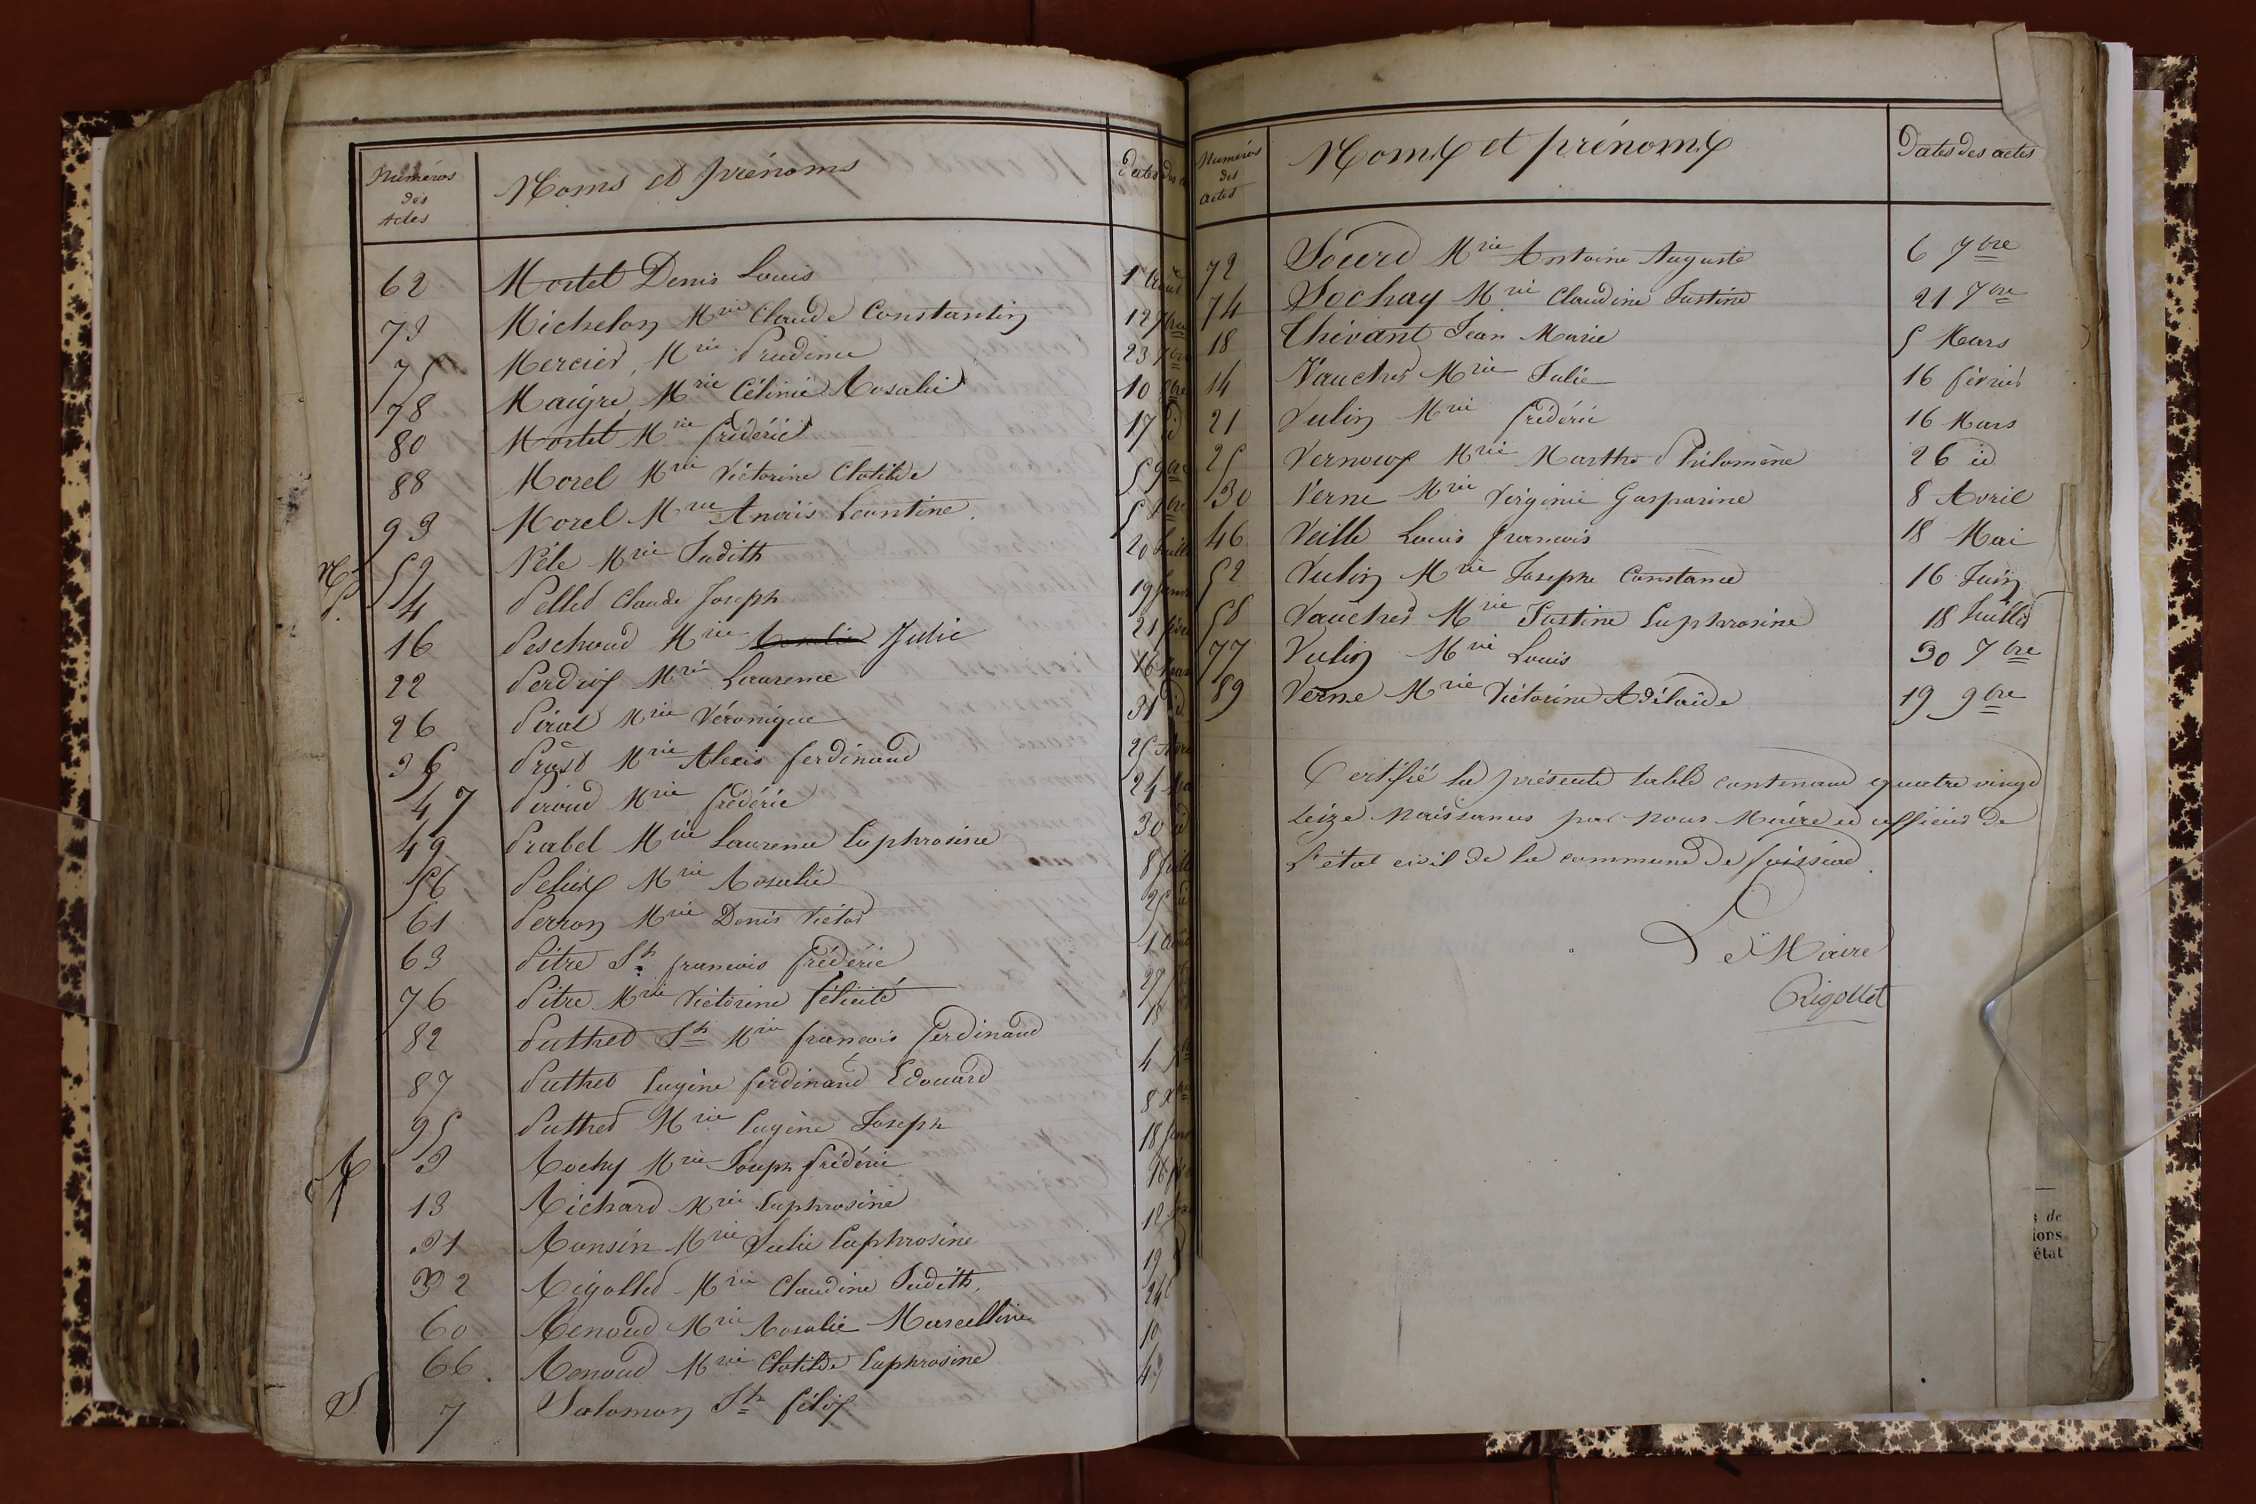 Numéros des Actes Noms et prénoms Dates des
62 Mortel Denis Louis 1 Août
73 Michelon Mrie Claude Constantin 12 7bre
75 Mercier, Mrie Prudence 23 7bre
78 Maigre Mrie Célinie Rosalie 10 8bre
80 Mortel Mrie frédéric 17 id
88 Morel Mrie Victorine Clotilde 5 9bre
93 Morel Mrie Anaïs Léontine 5 Xbre
N 59 Nele Mrie Judith 20 Juill
P. 4 Pellet Claude Joseph 19 Janv
16 Peschoud Mrie Julie 21 fév
22 Perdrix Mrie Laurence 16 Mars
26 Piral Mrie Véronique 31 id
36 Prost Mrie Alexis ferdinand 25 Avri
47 Piroud Mrie frédéric 24 Ma
49 Prabel Mrie Laurence Euphrosine 30 id
56 Pelux Mrie Rosalie 8 Juill
61 Perron Mrie Denis Victor 25 id
63 Pitre Jh francois frédéric 1 Août
76 Pitre Mrie Victorine félicité 27
82 Puthet Jh Mrie francois ferdinand 18
87 Puthet Eugène ferdinand Edouard 4
95 Puthet Mrie Eugène Joseph 8 Xbre
R 3 Rochy Mrie Joseph frédéric 18 Janv
13 Richard Mrie Euphrosine 16 fév
31 Ronsin Mrie Julie Euphrosine 12
32 Rigollet Mrie Claudine Judith 19
60 Renoud Mrie Rosalie Marcelline 24
66. Renoud Mrie Clotilde Euphrosine 10
S 7 Salomon Jh félix 4
Numéros des actes Noms et prénoms Dates des actes
72 Sourd Mrie Antoine Auguste 6 7bre
74 Sochay Mrie Claudine Justine 21 7bre
18 Thévant Jean Marie 5 Mars
14 Vaucher Mrie Julie 16 février
21 Vulin Mrie frédéric 16 Mars
25 Vernoux Mrie Marthe Philomène 26 id
30 Verne Mrie Virginie Gasparine 8 Avril
46 Veille Louis francois 18 Mai
52 Vulin Mrie Josephe Constance 16 Juin
58 Vaucher Mrie Justine Euphrosine 18 Juillet
77 Vulin Mrie Louis 30 7bre
89 Verne Mrie Victorine Adélaïde 19 9bre
Certifié la présente table contenant quatre vingt
seize naissances par nous Maire et officier de
L'état civil de la commune de
Le Maire
Rigollet
s de
ions
état